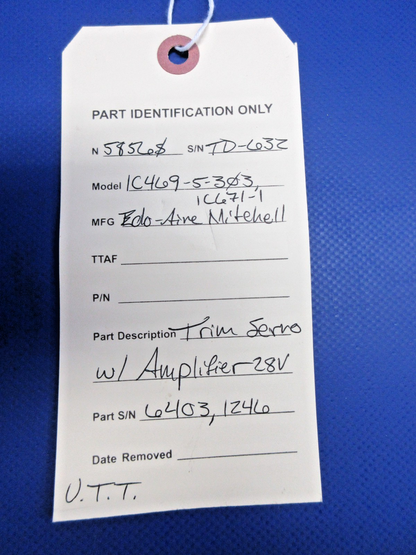 PART IDENTIFICATION ONLY
N 58568 S/N TD-632
Model 1C469-5-303,
1C671-1
MFG Edo-Aire Mitchell
TTAF
P/N
Part Description Trim Servo
w/ Amplifier 28V
Part S/N 6403, 1246
Date Removed
U.T.T.